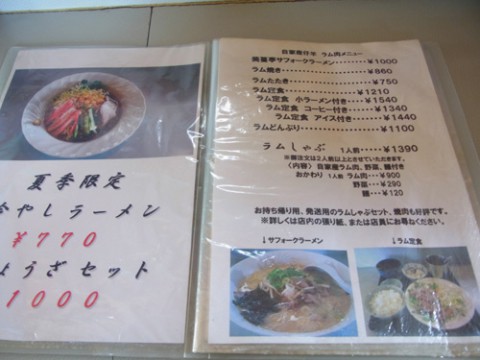 夏季限定
やしラーメン
¥770
ょうざセット
1000
自家産仔羊 ラム肉メニュー
サフォークラーメン・・・・・・・・¥1000
ラム焼き・・・・・・・・・・・・・¥860
ラムたたき・・・・・・・・・・・・¥750
ラム定食・・・・・・・・・・・・・¥1210
ラム定食 小ラーメン付き・・・・¥1540
ラム定食 コーヒー付き・・・・・¥1340
ラム定食 アイス付き・・・・・・¥1440
ラムどんぶり・・・・・・・・・・・¥1100
ラムしゃぶ 1人前・・・・・¥1390
※御注文は2人前以上とさせていただきます。
〈内容〉 自家産ラム肉、野菜、麺付き
おかわり 1人前 ラム肉・・・¥900
野菜・・・¥290
麺・・・¥120
お持ち帰り用、発送用のラムしゃぶセット、焼肉も好評です。
※詳しくは店内の張り紙、または店員にお尋ねください。
↓サフォークラーメン
↓ラム定食